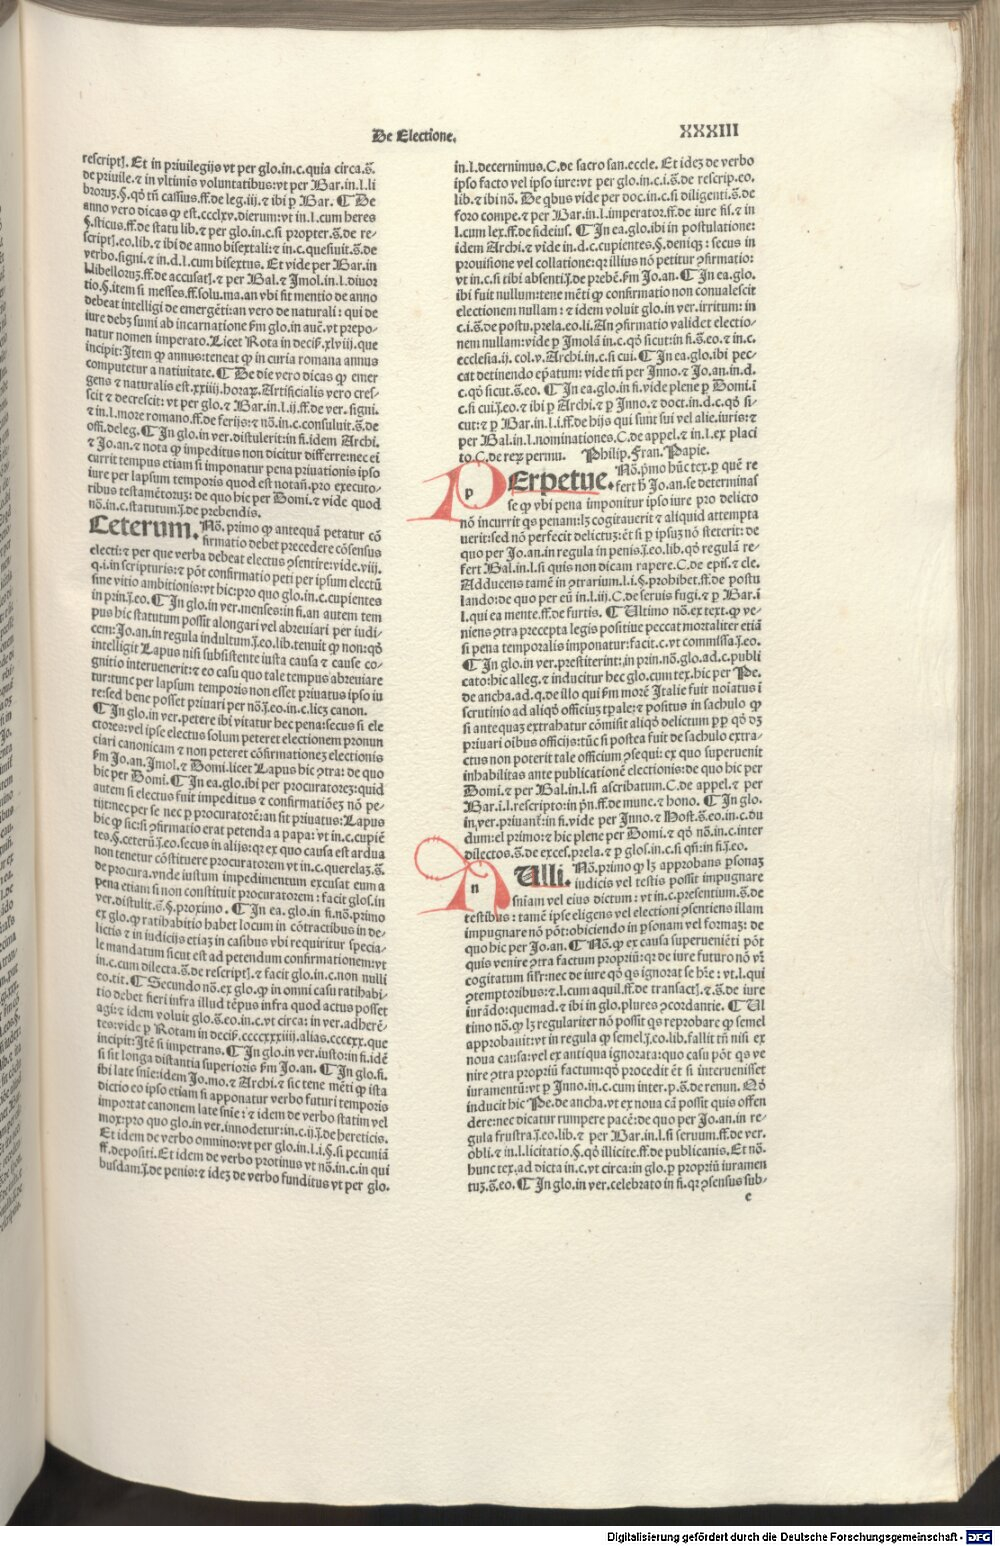 De Electione.
XXXIII
rescript. Et in priuilegijs vt per glo.in.c.quia circa.s̄.
de priuile.⁊ in vltimis voluntatibus:vt per Bar.in.l.li
broruꝫ.§.qō tn̄ cassius.ff.de leg.iij.⁊ ibi ꝑ Bar. ¶ De
anno vero dicas ꝙ est.ccclxv.dierum:vt in.l.cum heres
§.sticus.ff.de statu lib.⁊ per glo.in c.si propter.s̄.de re-
script.eo.lib.⁊ ibi de anno bisextali:⁊ in c.quesiuit.s̄.de
verbo.signi.⁊ in.d.l.cum bisextus. Et vide per Bar.in
l.libelloruꝫ.ff.de accusat.⁊ per Bal.⁊ Imol.in l.diuor
tio.§.item si messes.ff.solu.ma.an vbi fit mentio de anno
debeat intelligi de emergēti:an vero de naturali: qui de
iure debꝫ sumi ab incarnatione ẜm glo.in auē.vt prepo-
natur nomen imperato. Licet Rota in decis̄.xlvij.que
incipit:Item ꝙ annus:teneat ꝙ in curia romana annus
computetur a natiuitate. ¶ De die vero dicas ꝙ emer
gens ⁊ naturalis est.xxiiij.horaꝝ.Artificialis vero cres-
cit ⁊ decrescit: vt per glo.⁊ Bar.in l.ij.ff.de ver.signi.
⁊ in.l.more romano.ff.de ferijs:⁊ nō.in c.consuluit.s̄.de
offi.deleg. ¶ In glo.in ver.distulerit:in fi.idem Archi.
⁊ Jo.an.⁊ nota ꝙ impeditus non dicitur differre:nec ei
currit tempus etiam si imponatur pena priuationis ipso
iure per lapsum temporis quod est notan̄.pro executo-
ribus testamētoruꝫ: de quo hic per Domi.⁊ vide quod
nō.in c.statutum.j̄.de prebendis.
Ceterum. Nō. primo ꝙ antequā petatur cō
firmatio debet precedere cōsensus
electi:⁊ per que verba debeat electus ↄsentire:vide.viij.
q.i.in scripturis:⁊ pōt confirmatio peti per ipsum electū
sine vitio ambitionis:vt hic:pro quo glo.in c.cupientes
in prin.j̄.eo. ¶ In glo.in ver.menses:in fi.an autem tem
pus hic statutum possit alongari vel abreuiari per iudi-
cem:Jo.an.in regula indultum.j̄.eo.lib.tenuit ꝙ non:qō
intelligit Lapus nisi subsistente iusta causa ⁊ cause co-
gnitio interuenerit:⁊ eo casu quo tale tempus abreuiare
tur:tunc per lapsum temporis non esset priuatus ipso iu
re:sed bene posset priuari per nō.j̄.eo.in c.licꝫ canon.
¶ In glo.in ver.petere ibi vitatur hec pena:secus si ele
ctores:vel ipse electus solum peteret electionem pronun
ciari canonicam ⁊ non peteret cōfirmationeꝫ electionis
ẜm Jo.an.Imol.⁊ Domi.licet Lapus hic ↄtra: de quo
hic per Domi. ¶ In ea.glo.ibi per procuratoreꝫ:quid
autem si electus fuit impeditus ⁊ confirmatiōeꝫ nō pe-
tijt:nec per se nec ꝑ procuratorē:an sit priuatus:Lapus
hic ꝙ sic:si ↄfirmatio erat petenda a papa: vt in c.cupiē
tes.§.ceterū.j̄.eo.secus in alijs:qꝛ ex quo causa est ardua
non tenetur cōstituere procuratorem vt in c.querelaꝫ.s̄.
de procura.vnde iustum impedimentum excusat eum a
pena etiam si non constituit procuratorem: facit glos.in
ver.distulit.s̄.§.proximo. ¶ In ea.glo.in fi.nō.primo
ex glo.ꝙ ratihabitio habet locum in cōtractibus in de-
lictis ⁊ in iudicijs etiaꝫ in casibus vbi requiritur specia-
le mandatum sicut est ad petendum confirmationem:vt
in.c.cum dilecta.s̄.de rescript.⁊ facit glo.in.c.non nulli
eo.tit. ¶ Secundo nō.ex glo.ꝙ in omni casu ratihabi-
tio debet fieri infra illud tēpus infra quod actus posset
agi:⁊ idem voluit glo.s̄.eo.in c.vt circa: in ver.adherē-
tes:vide ꝑ Rotam in decis̄.ccccxxiiij.alias.ccccxx.que
incipit:Itē si impetrans. ¶ In glo.in ver.iusto:in fi.idē
si sit longa distantia superioris ẜm Jo.an. ¶ In glo.fi.
ibi late snīe:idem Jo.mo.⁊ Archi.⁊ sic tene mēti ꝙ ista
dictio eo ipso etiam si apponatur verbo futuri temporis
importat canonem late snīe: ⁊ idem de verbo statim vel
mox:pro quo glo.in ver.innodetur:in c.ij.j̄.de hereticis.
Et idem de verbo omnino:vt per glo.in.l.i.§.si pecuniā
ff.depositi. Et idem de verbo protinus vt nō.in c.in qui
busdam.j̄.de penis:⁊ ideꝫ de verbo funditus vt per glo.
in.l.decernimus.C.de sacro san.eccle. Et ideꝫ de verbo
ipso facto vel ipso iure:vt per glo.in.c.i.s̄.de rescrip.eo.
lib.⁊ ibi nō. De qbus vide per doc.in c.si diligenti.s̄.de
foro compe.⁊ per Bar.in l.imperator.ff.de iure fis.⁊ in
l.cum lex.ff.de fideius. ¶ In ea.glo.ibi in postulatione:
idem Archi.⁊ vide in.d.c.cupientes.§.deniqꝫ: secus in
prouisione vel collatione:qꝛ illius nō petitur ↄfirmatio:
vt in c.si tibi absenti.j̄.de prebē.ẜm Jo.an. ¶ In ea.glo.
ibi fuit nullum:tene mēti ꝙ confirmatio non conualescit
electionem nullam: ⁊ idem voluit glo.in ver.irritum: in
c.i.s̄.de postu.prela.eo.li.An ↄfirmatio validet electio-
nem nullam:vide ꝑ Imolā in c.qō sicut:in fi.s̄.eo.⁊ in c.
ecclesia.ij. col.v.Archi.in c.si cui. ¶ In ea.glo.ibi pec-
cat detinendo ep̄atum: vide tn̄ per Inno.⁊ Jo.an.in d.
c.qō sicut.s̄.eo. ¶ In ea.glo.in fi.vide plene ꝑ Domi.ī
c.si cui.j̄.eo.⁊ ibi ꝑ Archi.⁊ ꝑ Inno.⁊ doct.in d.c.qō si-
cut:⁊ ꝑ Bar.in l.i.ff.de hijs qui sunt sui vel alie.iuris:⁊
per Bal.in l.nominationes.C.de appel.⁊ in l.ex placi
to.C.de reꝝ permu. Philip.Fran.Papie.
PErpetue. Nō.pm̄o hūc tex.ꝑ quē re
fert h̄ Jo.an.se determinas
se ꝙ vbi pena imponitur ipso iure pro delicto
nō incurrit qs penam:lꝫ cogitauerit ⁊ aliquid attempta
uerit:sed nō perfecit delictuꝫ:ēt si ꝑ ipsuꝫ nō steterit: de
quo per Jo.an.in regula in penis.j̄.eo.lib.qō regulā re-
fert Bal.in l.si quis non dicam rapere.C.de epis̄.⁊ cle.
Adducens tamē in ↄtrarium.l.i.§.prohibet.ff.de postu
lando:de quo per eū in.l.iij.C.de seruis fugi.⁊ ꝑ Bar.ī
l.qui ea mente.ff.de furtis. ¶ Ultimo nō.ex text.ꝙ ve-
niens ↄtra precepta legis positiue peccat mortaliter etiā
si pena temporalis imponatur:facit.c.vt commissa.j̄.eo.
¶ In glo.in ver.prestiterint:in prin.nō.glo.ad.c.publi
cato:hic alleg.⁊ inducitur hec glo.cum tex.hic per Pe.
de ancha.ad.q.de illo qui ẜm morē Italie fuit noīatus ī
scrutinio ad aliqō officiuꝫ tp̄ale:⁊ positus in sachulo ꝙ
si antequaꝫ extrahatur cōmisit aliqō delictum ꝓpꝑ qō dꝫ
priuari oībus officijs:tūc si postea fuit de sachulo extra-
ctus non poterit tale officium ↄsequi: ex quo superuenit
inhabilitas ante publicationē electionis:de quo hic per
Domi.⁊ per Bal.in l.si ascribatum.C.de appel.⁊ per
Bar.i.l.rescripto:in pn̄.ff.de mune.⁊ hono. ¶ In glo.
in.ver.priuant̄:in fi.vide per Inno.⁊ Host.s̄.eo.in c.du
dum:el primo:⁊ hic plene per Domi.⁊ qō nō.in c.inter
dilectos.s̄.de exces.prela.⁊ ꝑ glos.in c.si qn̄:in fi.j̄.eo.
NUlli. Nō.primo ꝙ lꝫ approbans ꝑsonaꝫ
iudicis vel testis possit impugnare
sniam vel eius dictum: vt in c.presentium.s̄.de
testibus: tamē ipse eligens vel electioni ↄsentiens illam
impugnare nō pōt:obiciendo in ꝑsonam vel formaꝫ: de
quo hic per Jo.an. ¶ Nō.ꝙ ex causa superueniēti pōt
quis venire ↄtra factum propriū:qꝛ de iure futuro nō vr̄
cogitatum silr̄:nec de iure qō qs ignorat se hr̄e: vt.l.qui
ↄtemptoribus:⁊.l.cum aquil.ff.de transact.⁊.s̄.de iure
iurādo:quemad.⁊ ibi in glo.plures ↄcordantie. ¶ Ul
timo nō.ꝙ lꝫ regulariter nō possit qs reprobare ꝙ semel
approbauit:vt in regula ꝙ semel.j̄.eo.lib.fallit tn̄ nisi ex
noua causa:vel ex antiqua ignorata:quo casu pōt qs ve
nire ↄtra propriū factum:qō procedit ēt si interuenisset
iuramentū:vt ꝑ Inno.in c.cum inter.p.s̄.de renun. Nō
inducit hic Pe.de ancha.vt ex noua cā possit quis offen
dere:nec dicatur rumpere pacē:de quo per Jo.an.in re-
gula frustra.j̄.eo.lib.⁊ per Bar.in.l.si seruum.ff.de ver.
obli.⁊ in.l.licitatio.§.qō illicite.ff.de publicanis.Et nō.
hunc tex.ad dicta in.c.vt circa:in glo.ꝑ propriū iuramen
tuꝫ.s̄.eo. ¶ In glo.in ver.celebrato in fi.qꝛ ↄsensus sub-
e
Digitalisierung gefördert durch die Deutsche Forschungsgemeinschaft - DFG